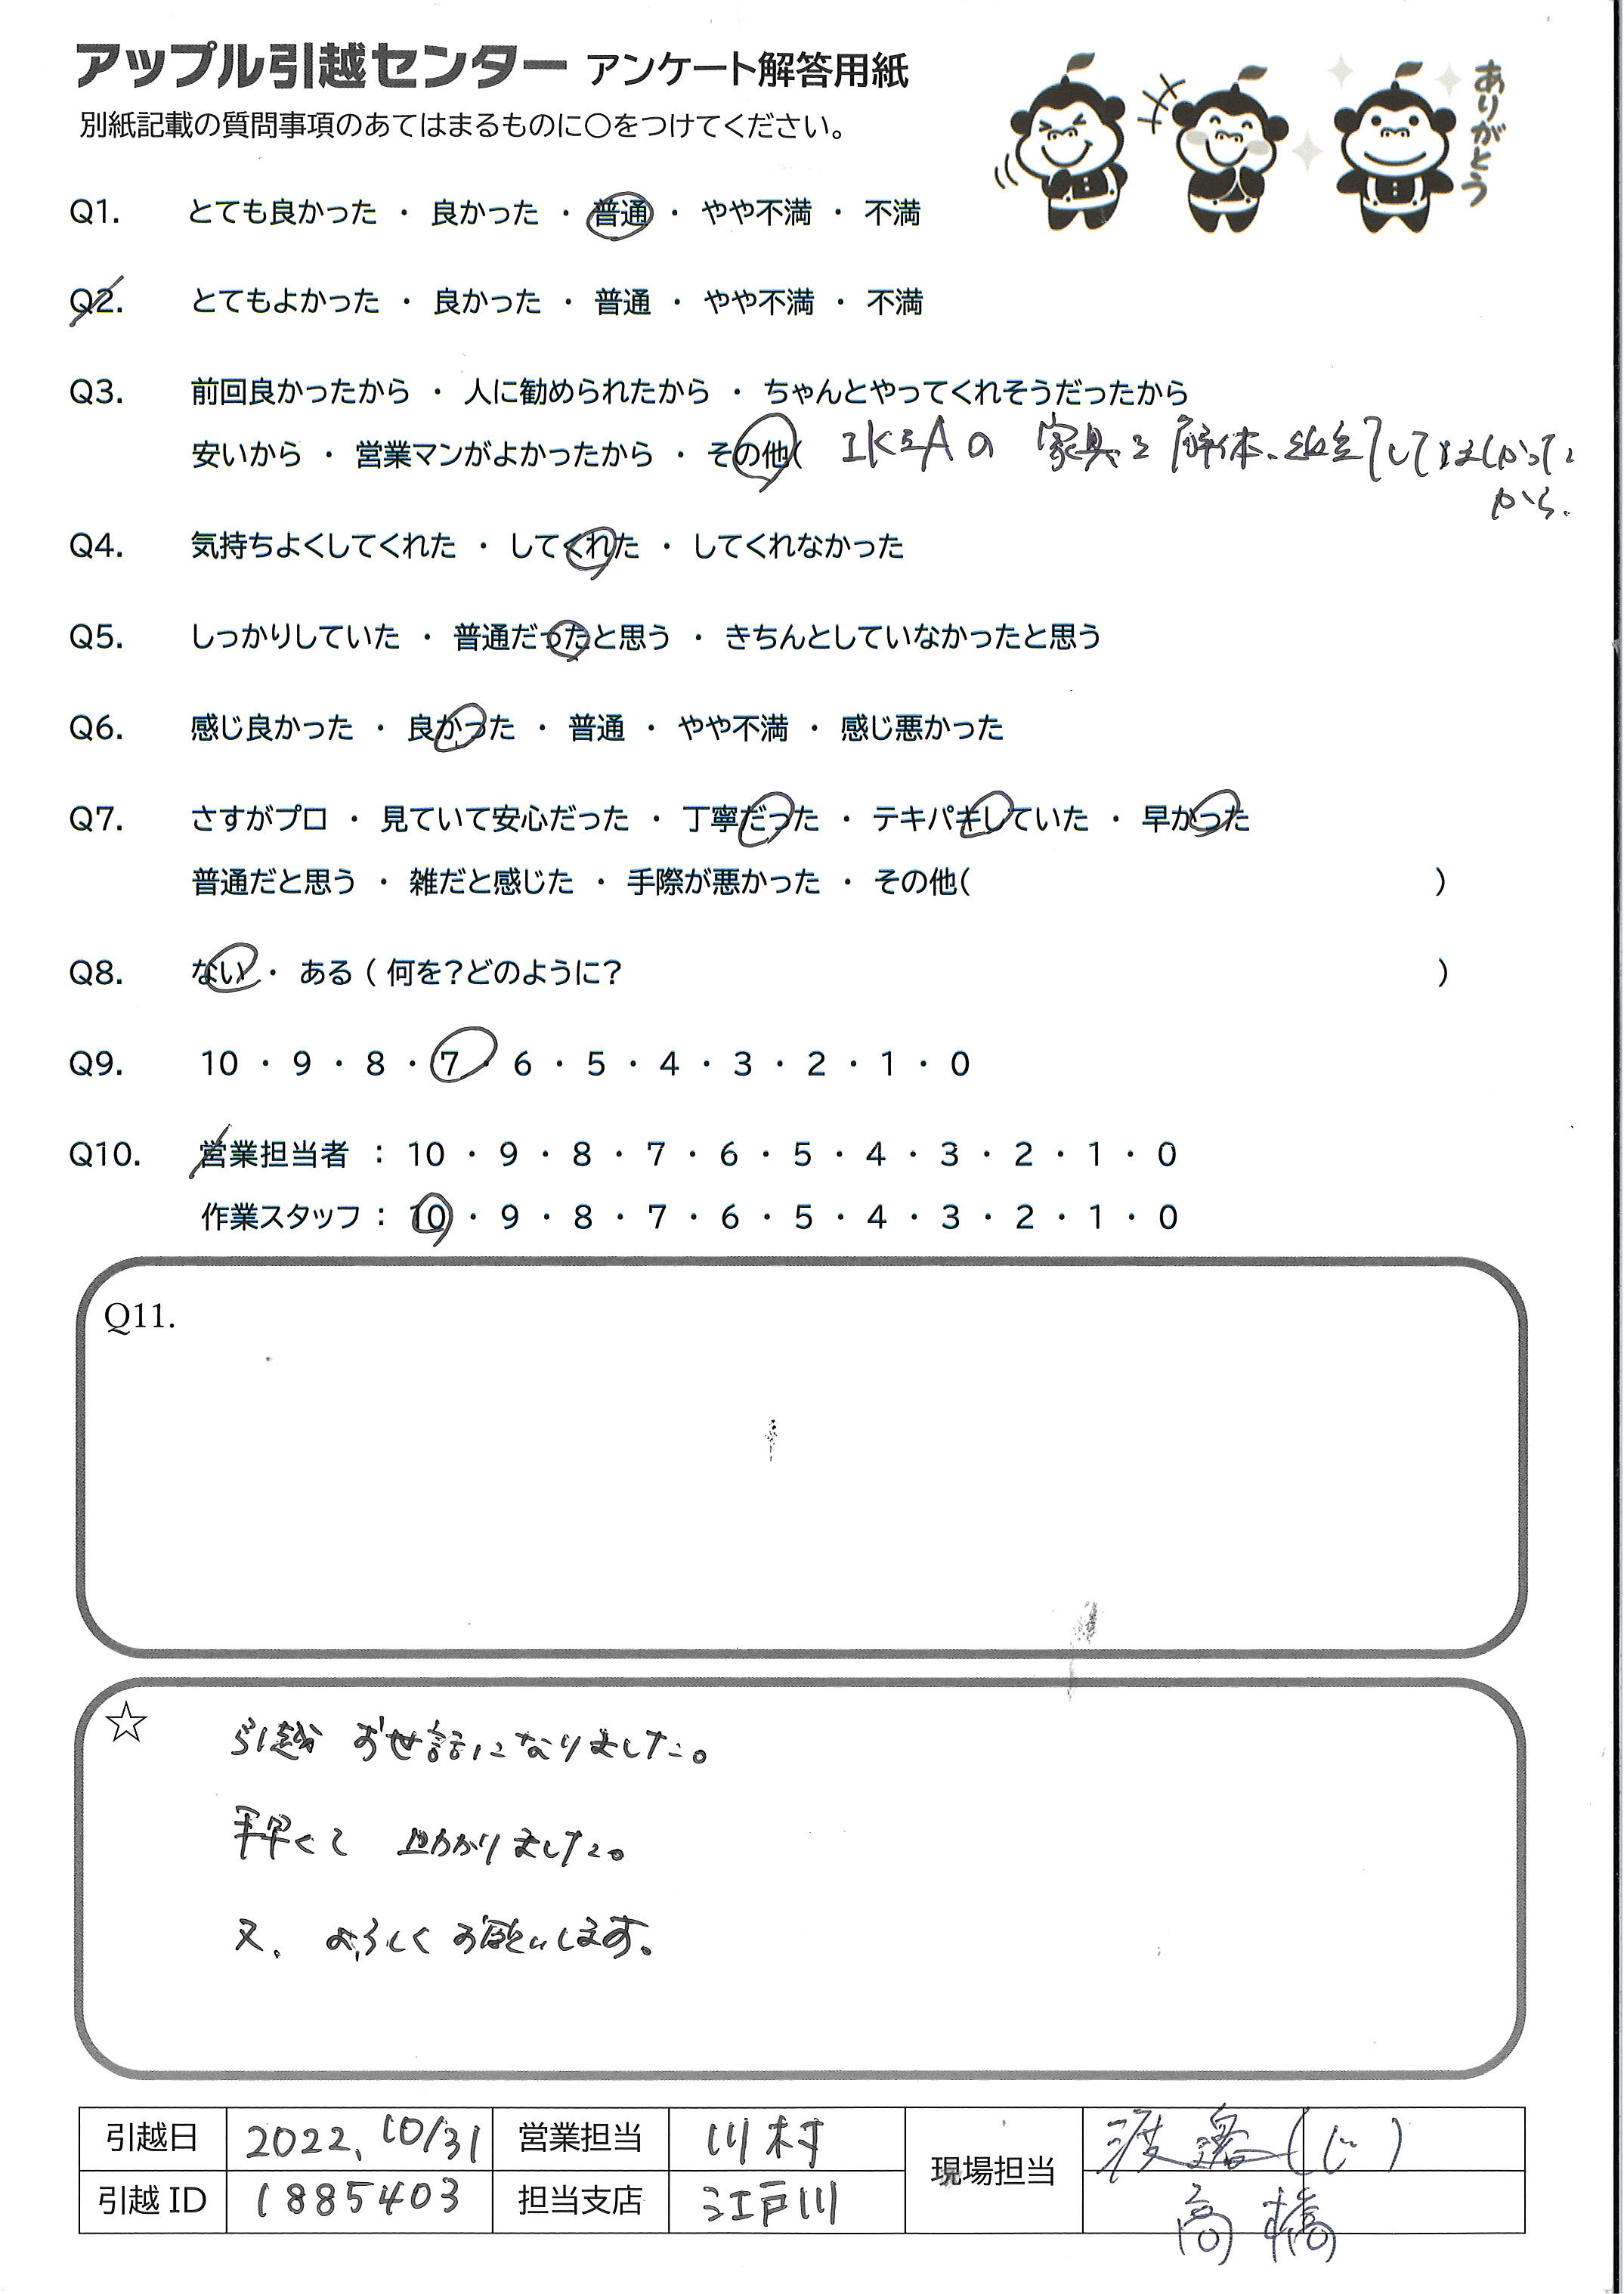 アップル引越センター アンケート解答用紙
ありがとう
別紙記載の質問事項のあてはまるものに○をつけてください。
Q1. とても良かった ・ 良かった ・ 普通 ・ やや不満 ・ 不満
Q2. とてもよかった ・ 良かった ・ 普通 ・ やや不満 ・ 不満
Q3. 前回良かったから ・ 人に勧められたから ・ ちゃんとやってくれそうだったから
安いから ・ 営業マンがよかったから ・ その他( IKEAの 家具を解体、組立してほしかった
から.
Q4. 気持ちよくしてくれた ・ してくれた ・ してくれなかった
Q5. しっかりしていた ・ 普通だったと思う ・ きちんとしていなかったと思う
Q6. 感じ良かった ・ 良かった ・ 普通 ・ やや不満 ・ 感じ悪かった
Q7. さすがプロ ・ 見ていて安心だった ・ 丁寧だった ・ テキパキしていた ・ 早かった
普通だと思う ・ 雑だと感じた ・ 手際が悪かった ・ その他( )
Q8. ない ・ ある ( 何を?どのように? )
Q9. 10 ・ 9 ・ 8 ・ 7 ・ 6 ・ 5 ・ 4 ・ 3 ・ 2 ・ 1 ・ 0
Q10. 営業担当者 : 10 ・ 9 ・ 8 ・ 7 ・ 6 ・ 5 ・ 4 ・ 3 ・ 2 ・ 1 ・ 0
作業スタッフ : 10 ・ 9 ・ 8 ・ 7 ・ 6 ・ 5 ・ 4 ・ 3 ・ 2 ・ 1 ・ 0
Q11.
☆ 引越 お世話になりました。
手早くて 助かりました。
又、よろしくお願いします。
引越日 2022、10/31 営業担当 川村 現場担当 渡邉(じ)
引越ID 1885403 担当支店 江戸川 高橋